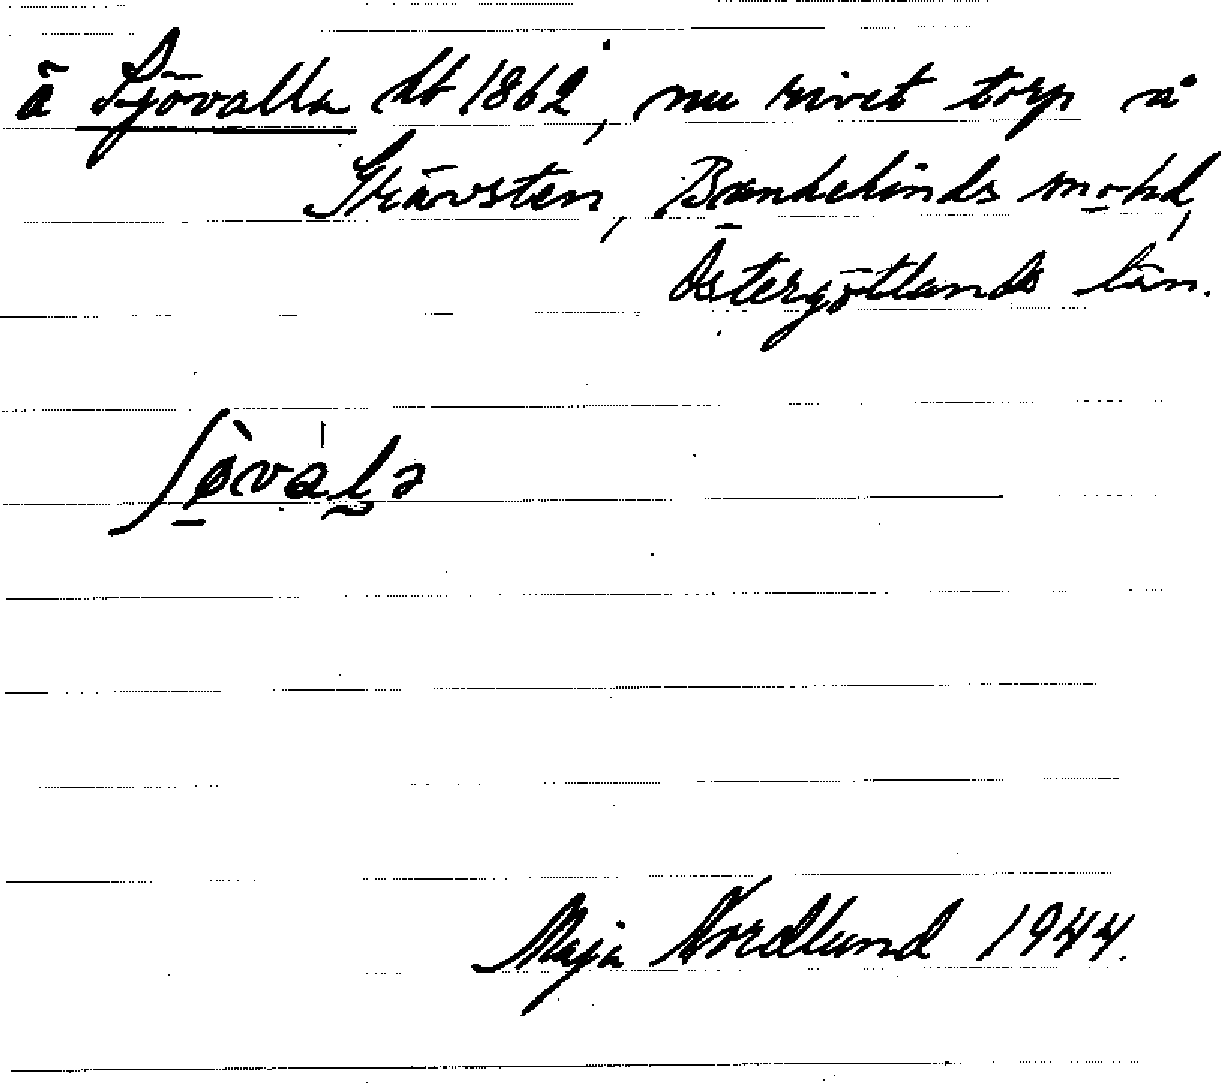 ā Sjövalla 1862, nu rivet torp å
Skärvsten, Bankekinds sn o hd,
Östergötlands län.
ʃø̀valə
Maja Nordlund 1944.